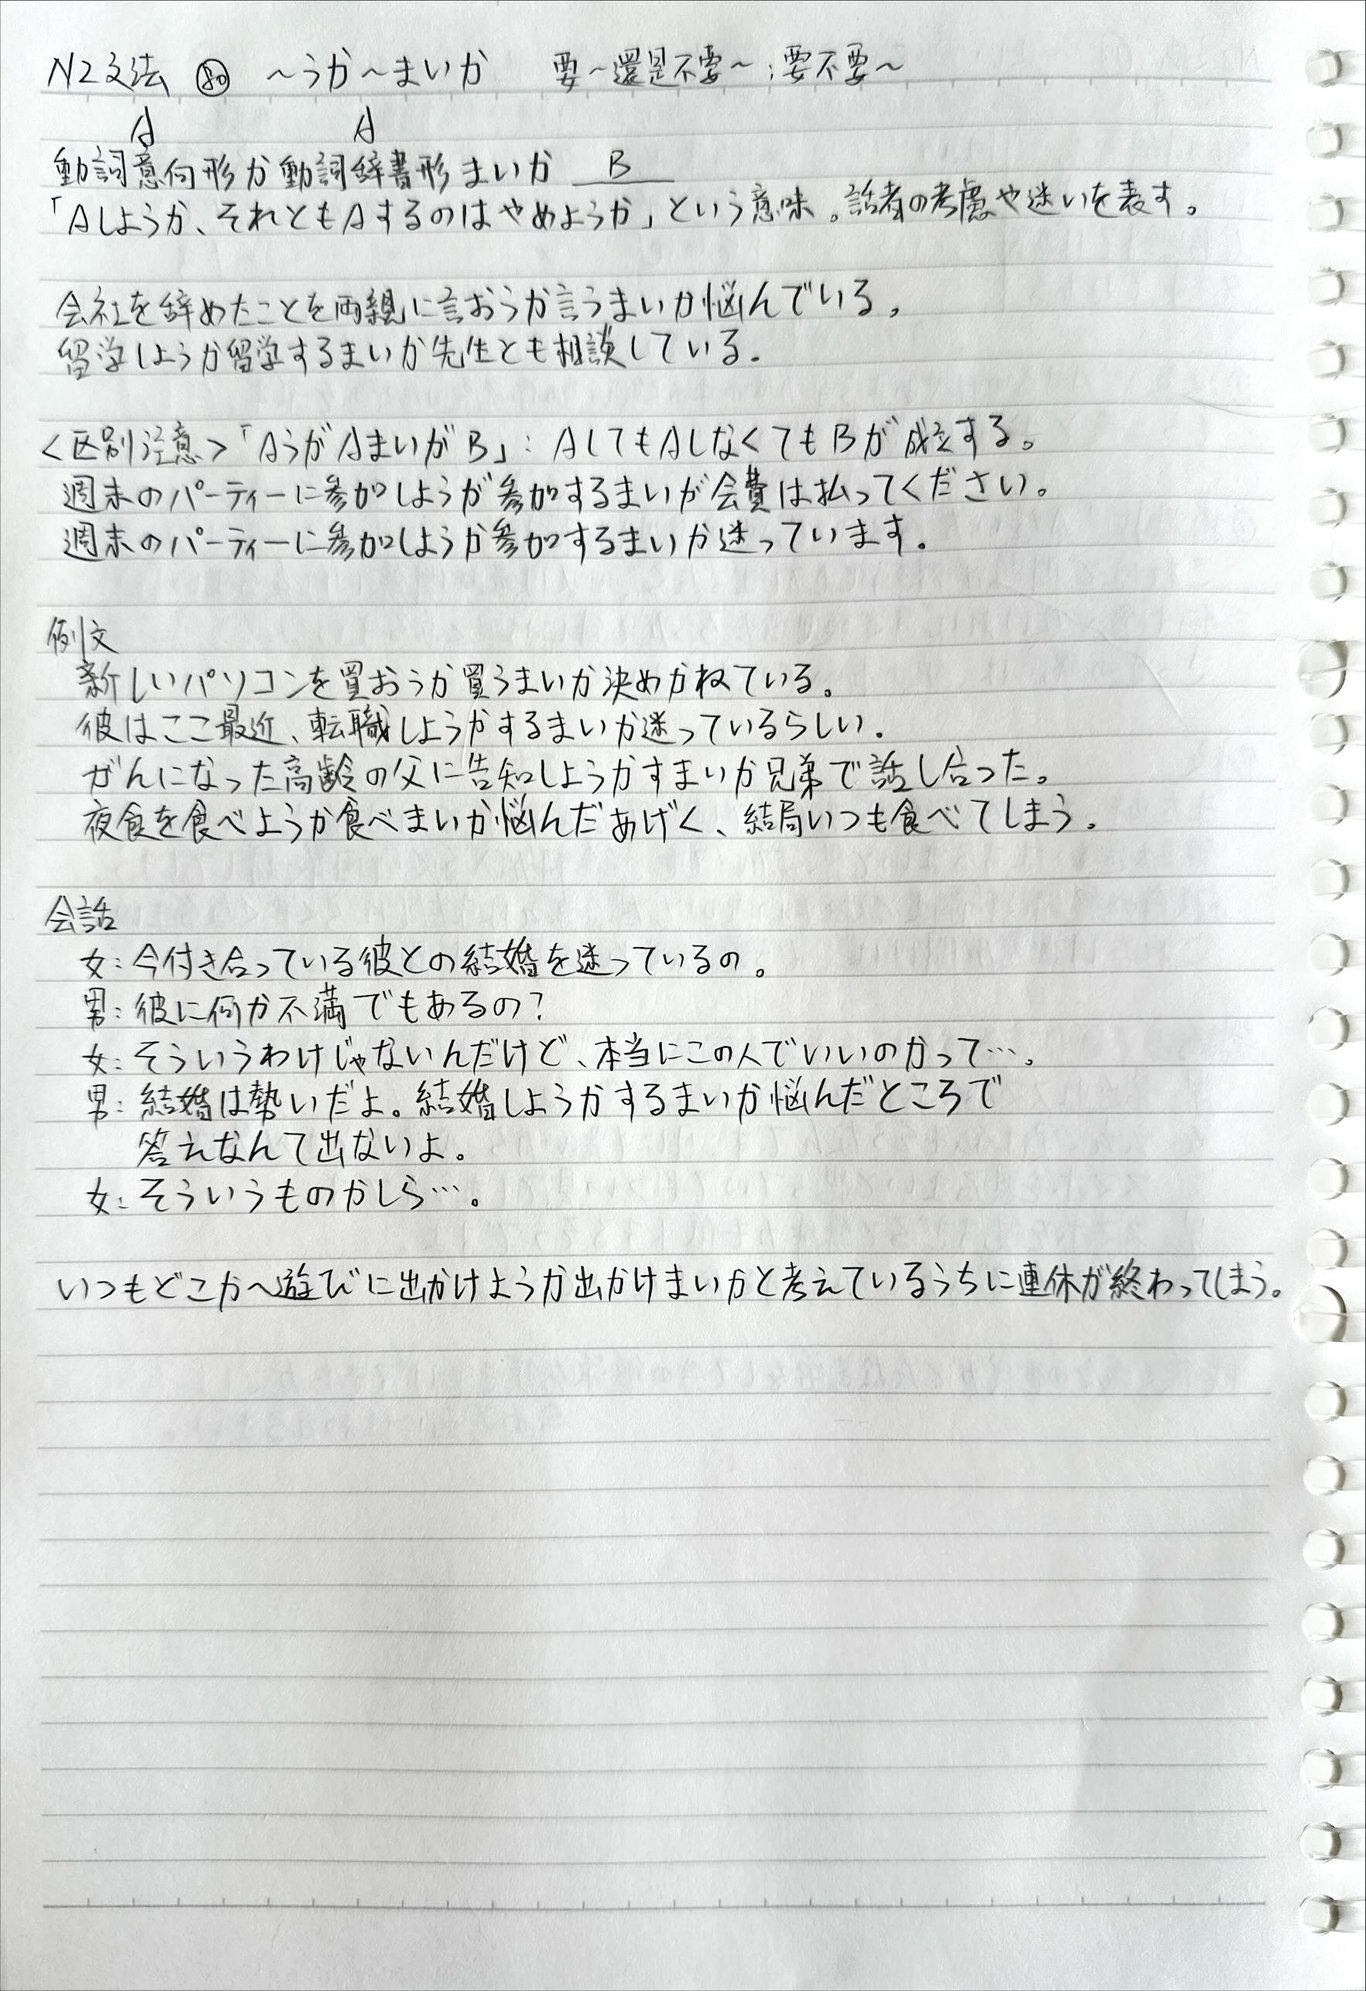 N2文法 ⑧⓪ ～うか～まいか 要～還是不要～；要不要～
A A
動詞意向形か動詞辞書形まいか B
「Aしようか、それともAするのはやめようか」という意味。話者の考慮や迷いを表す。
会社を辞めたことを両親に言おうか言うまいか悩んでいる。
留学しようか留学するまいか先生とも相談している。
<区別注意>「AうがAまいがB」：AしてもAしなくてもBが成立する。
週末のパーティーに参加しようが参加するまいが会費は払ってください。
週末のパーティーに参加しようか参加するまいか迷っています。
例文
新しいパソコンを買おうか買うまいか決めかねている。
彼はここ最近、転職しようかするまいか迷っているらしい。
がんになった高齢の父に告知しようかすまいか兄弟で話し合った。
夜食を食べようか食べまいか悩んだあげく、結局いつも食べてしまう。
会話
女：今付き合っている彼との結婚を迷っているの。
男：彼に何か不満でもあるの？
女：そういうわけじゃないんだけど、本当にこの人でいいのかって…。
男：結婚は勢いだよ。結婚しようかするまいか悩んだところで
答えなんて出ないよ。
女：そういうものかしら…。
いつもどこかへ遊びに出かけようか出かけまいかと考えているうちに連休が終わってしまう。